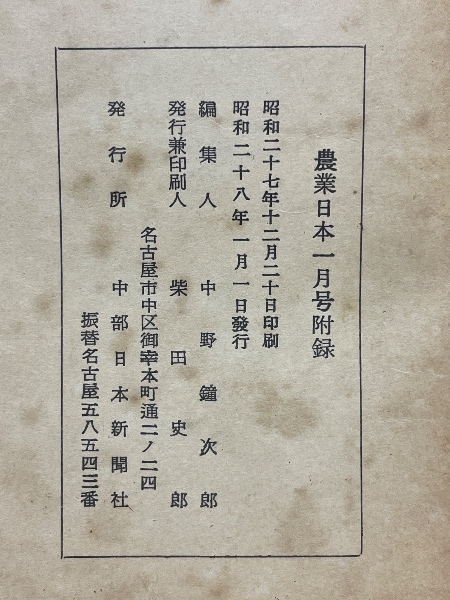 農業日本一月号附録
昭和二十七年十二月二十日印刷
昭和二十八年一月一日發行
編集人　中野鐘次郎
発行兼印刷人　柴田史郎
名古屋市中区御幸本町通二ノ二四
発行所　中部日本新聞社
振替名古屋五八五四三番